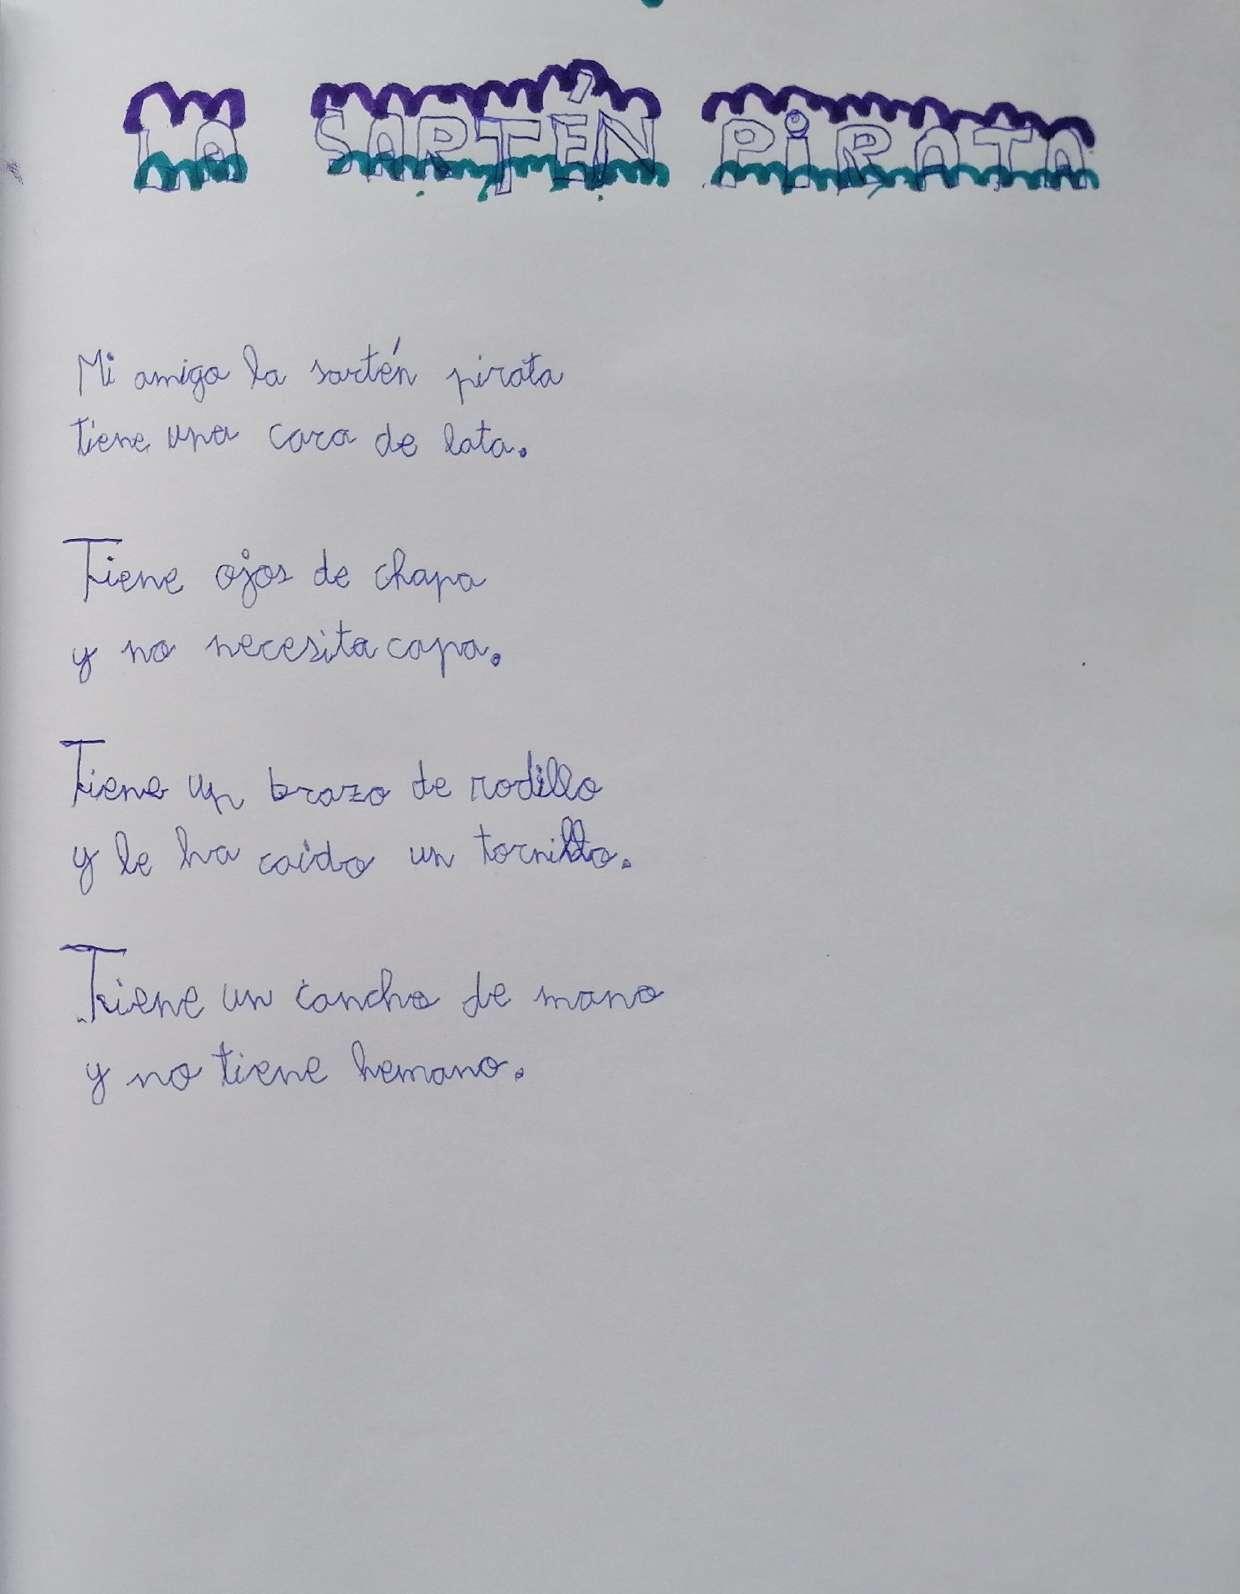 LA SARTÉN PiRATA
Mi amiga la sartén pirata
tiene una cara de lata.
Tiene ojos de chapa
y no necesita capa.
Tiene un brazo de rodillo
y le ha caido un tornillo.
Tiene un cancho de mano
y no tiene hemano.